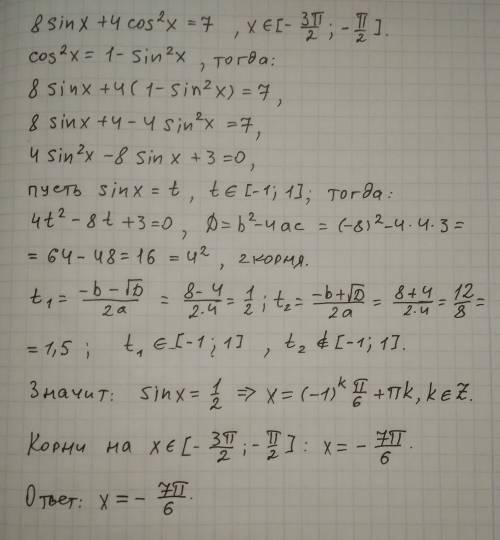 8 sinx + 4 cos²x = 7 , x∈[-3π/2 ; -π/2].
cos²x = 1 - sin²x , тогда:
8 sinx + 4(1 - sin²x) = 7,
8 sinx + 4 - 4 sin²x = 7,
4 sin²x - 8 sinx + 3 = 0,
пусть sinx = t , t∈[-1; 1]; тогда:
4t² - 8t + 3 = 0 , D = b² - 4ac = (-8)² - 4·4·3 =
= 64 - 48 = 16 = 4² , 2 корня.
t₁ = (-b - √D)/2a = (8 - 4)/(2·4) = 1/2 ; t₂ = (-b + √D)/2a = (8 + 4)/(2·4) = 12/8 =
= 1,5 ; t₁ ∈ [-1 ; 1] , t₂ ∉ [-1; 1].
Значит: sinx = 1/2 ⇒ x = (-1)ᵏ π/6 + πk, k∈Z.
Корни на x∈[-3π/2 ; -π/2] : x = - 7π/6.
Ответ: x = - 7π/6.